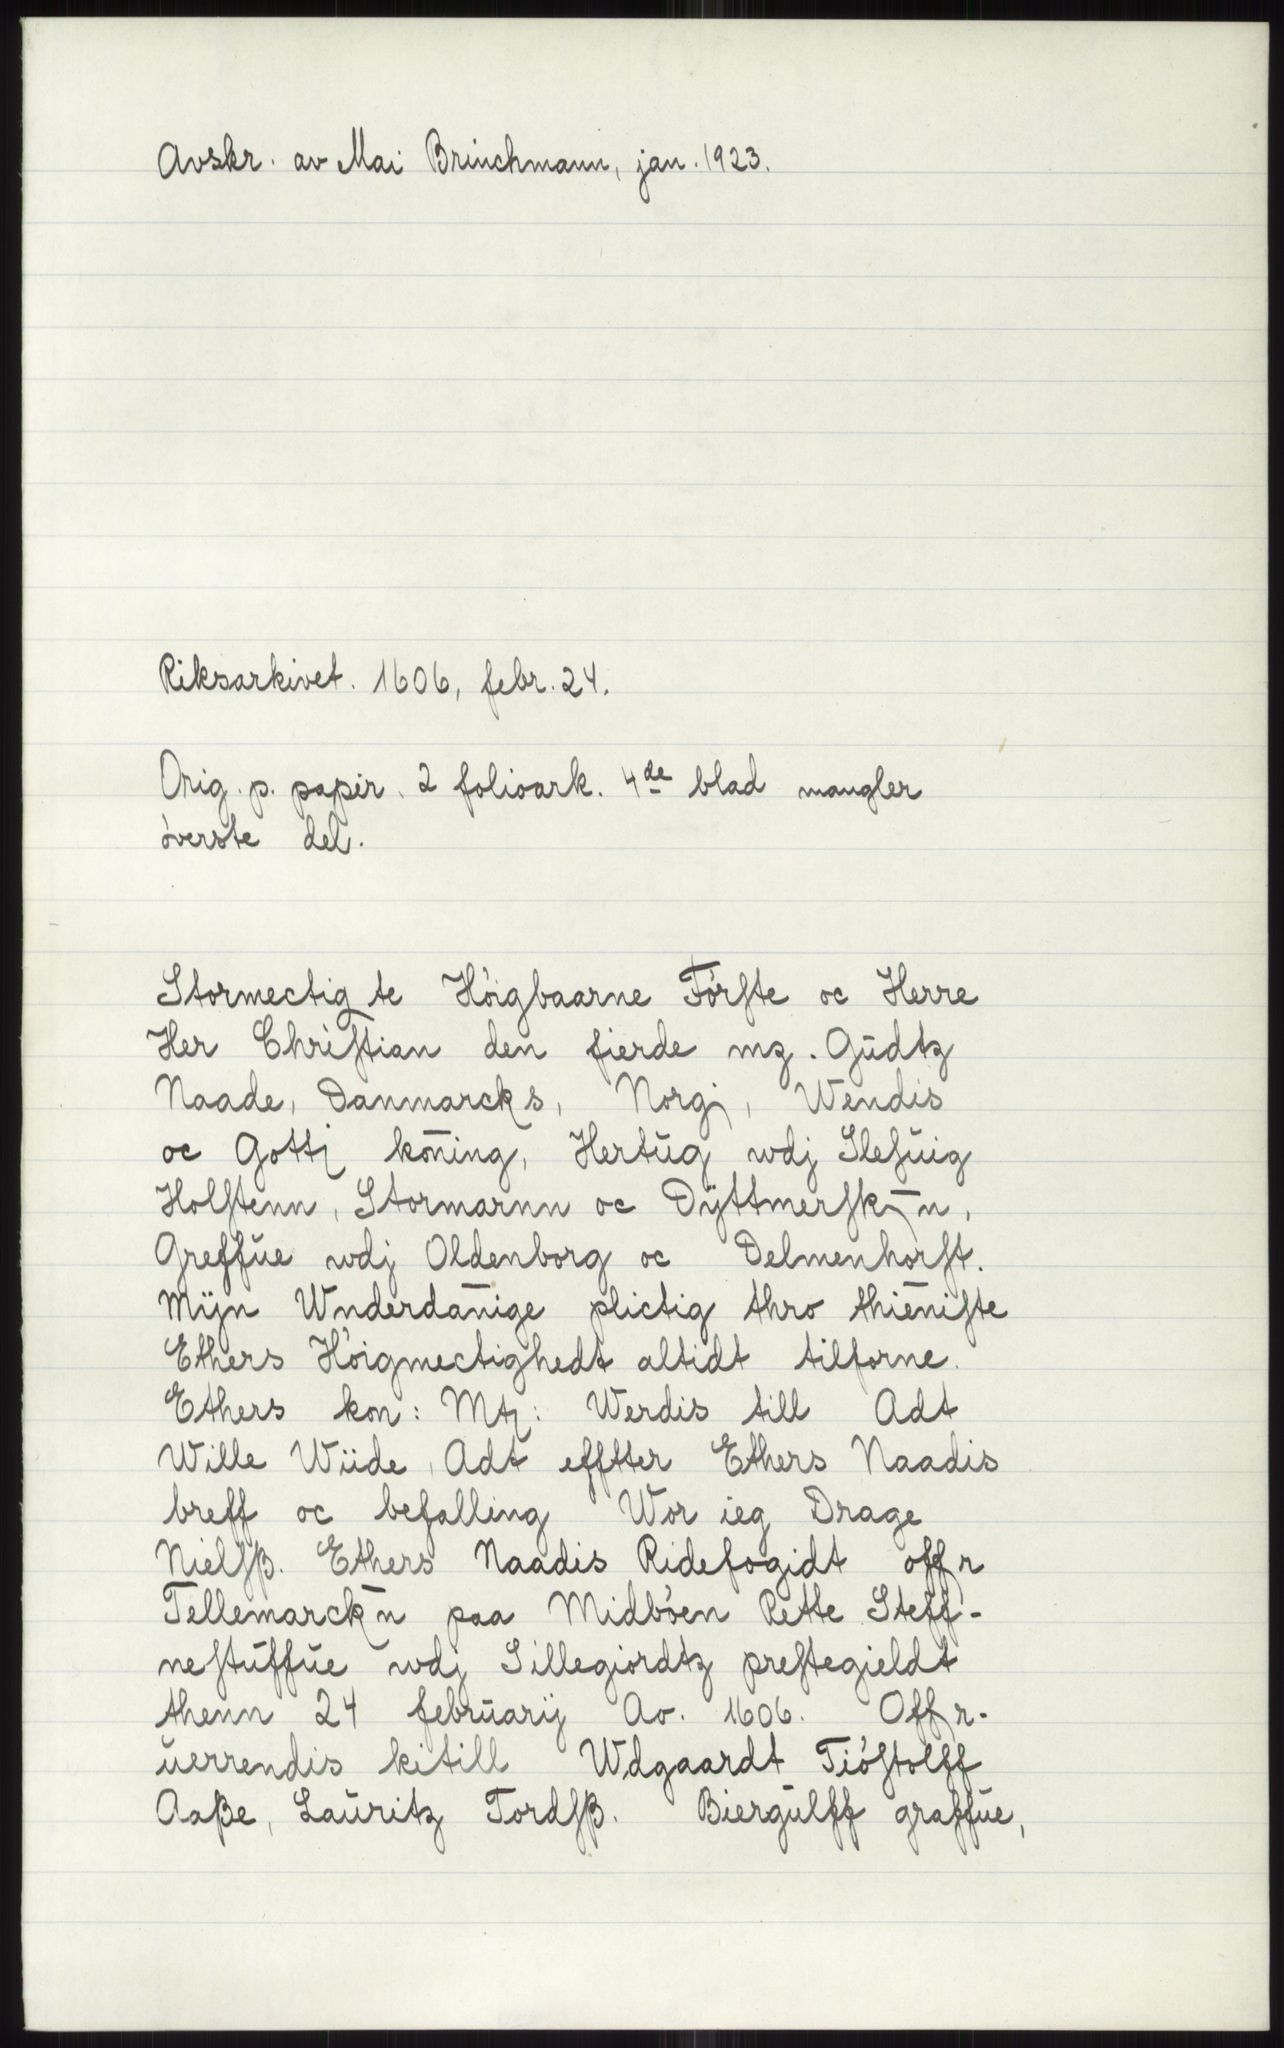 Avskr. av Mai Brinchmann, jan. 1923.
Riksarkivet. 1606, febr. 24.
Orig. p. papir. 2 folioark. 4de blad mangler
överste del.
Stormectigste Höigbaarne Förste oc Herre
Her Christian den fierde mz. Gudtz
Naade, Danmarcks, Norgj, Wendis
oc Gottj köning, Hertug wdj Slesuig
Holstenn, Stormarnn oc Dÿttmerskn̄,
Greffue wdj Oldenborg oc Delmenhorst.
Mijn Wnderdanige plictig thro thieniste
Ethers Höigmectighedt altidt tilforne.
Ethers kon: Mtz: Werdis till Adt
Wille Wiide, Adt efftter Ethers Naadis
breff oc befalling Wor ieg Drage
Nielsß. Ethers Naadis Ridefogidt offr
Tellemarckn̄ paa Midböen Rette Steff-
nestuffue wdj Sillegiordtz prestegieldt
thenn 24 februarij Ao. 1606. Offr-
uerrendis kitill Wdgaardt Tiöstolff
Aaße, Lauritz Tordsß. Biergulff graffue,